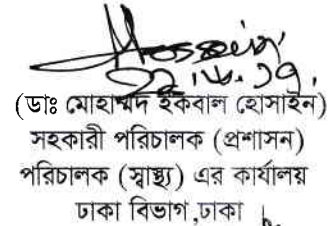 Hossain
(ডাঃ মোহাম্মদ ইকবাল হোসাইন)
সহকারী পরিচালক (প্রশাসন)
পরিচালক (স্বাস্থ্য) এর কার্যালয়
ঢাকা বিভাগ,ঢাকা